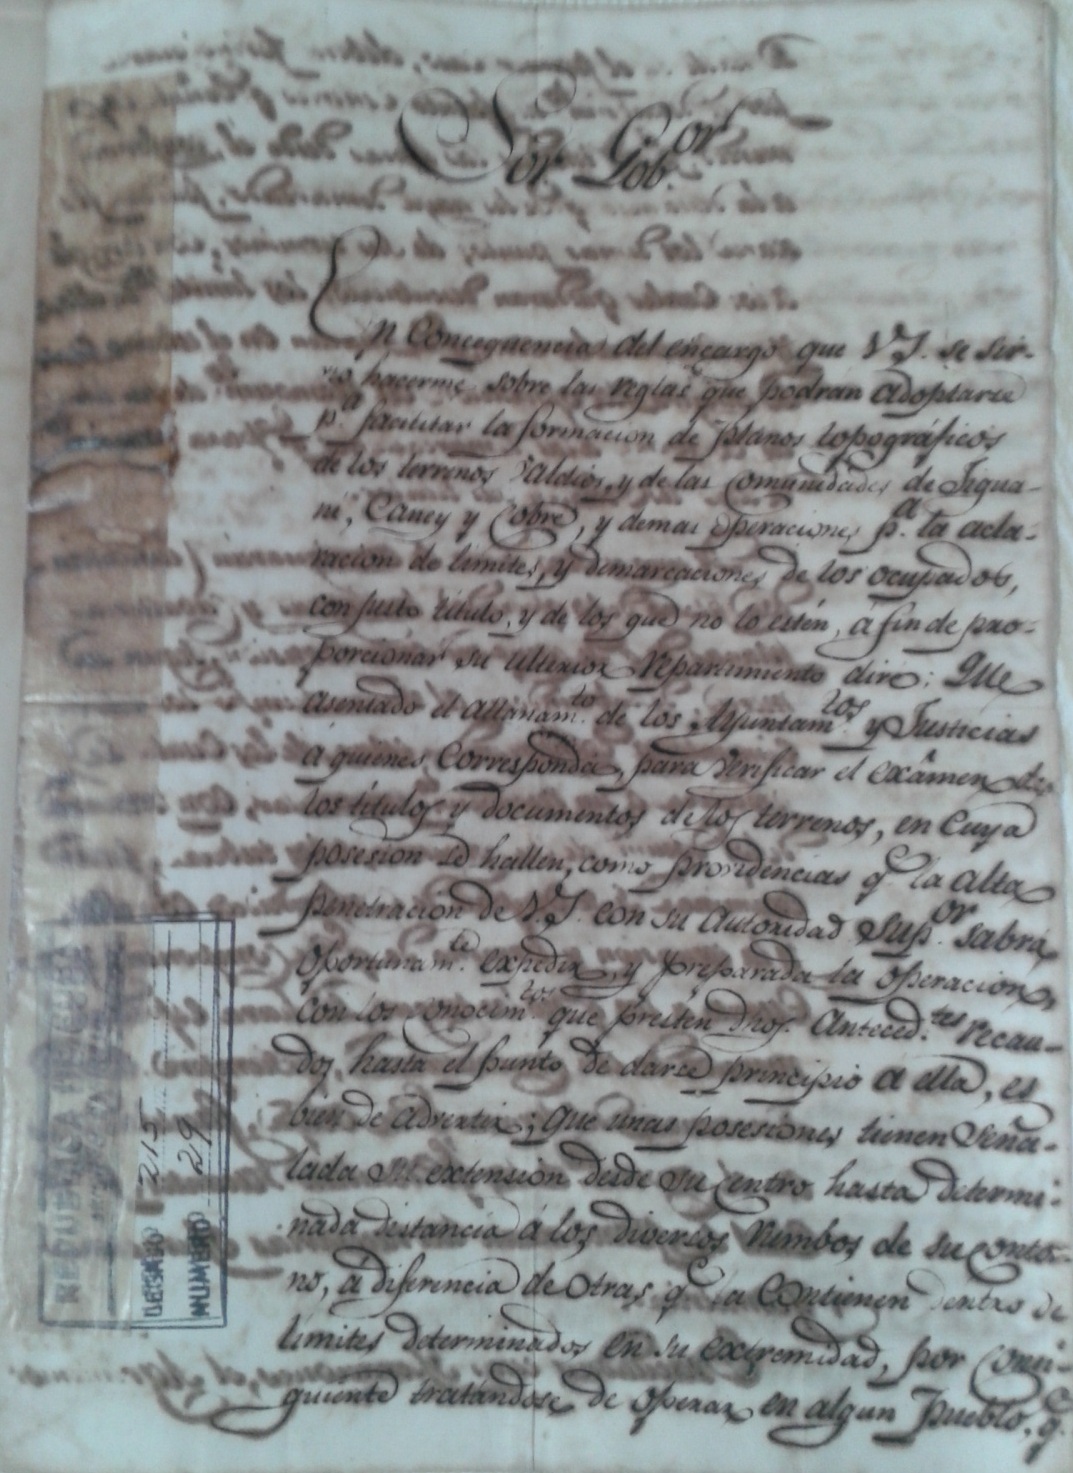 Sor. Gob.or
En Concequencia del encargo que V.I. se sir-
vió hacerme sobre las reglas que podrán adoptarce
p.a facilitar la formacion de planos topográficos
de los terrenos valdios, y de las Comunidades de Jigua-
ni, Caney y Cobre, y demas operaciones p.a la acla-
racion de limites, y demarcaciones de los ocupados,
con justo titulo, y de los que no lo estén, á fin de pro-
porcionar su ulterior repartimiento dire: Que
asentado el allanam.to de los Ayuntam.tos y Justicias
á quienes Corresponda, para verificar el exâmen de
los titulos y documentos de los terrenos, en cuya
posesion se hallen, como providencias q.e la alta
penetracion de V.I. con su autoridad Sup.or sabrá
oportunam.te expedir, y preparada la operacion,
con los conocim.tos que presten dhos. Anteced.tes recau-
dos, hasta el punto de darce principio a ella, es
bien de advertir; Que unas posesiones tienen Seña-
lada su extension desde su Centro hasta determi-
nada distancia á los diversos rumbos de su conto-
no, a diferencia de otras q.e la Contienen dentro de
limites determinados en su extremidad, por Consi-
guiente tratandose de operar en algun Pueblo, q.e
REPUBLICA DE CUBA
LEGAJO 215
NUMERO 29